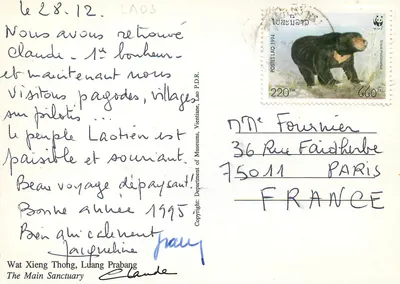 le 28.12. LAOS
Nous avons retrouvé
Claude - 1er bonheur -
et maintenant nous
visitons pagodes, villages
sur pilotis ...
le peuple Laotien est
paisible et souriant.
Beau voyage dépaysant!
Bonne année 1995
Bien amicalement
Jacqueline
Claude
Wat Xieng Thong, Luang Prabang
The Main Sanctuary
Copyright: Department of Museums, Vientiane, Lao P.D.R.
ໄປສະນີລາວ
WWF
POSTES LAO 1994
220
660
Mme Fournier
36 Rue Faidherbe
75011 PARIS
FRANCE